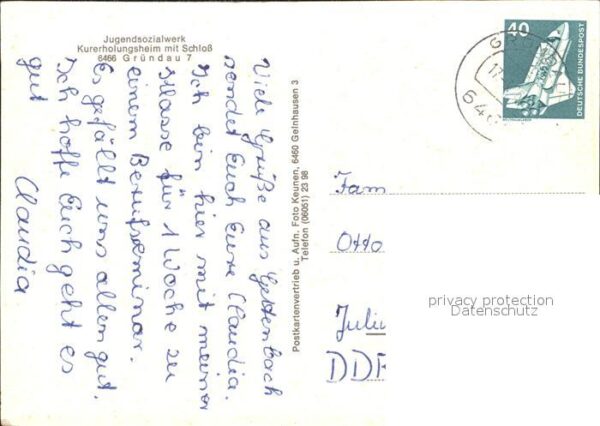 Jugendsozialwerk
Kurerholungsheim mit Schloß
6466 Gründau 7
Viele Grüße aus Gettenbach
sendet Euch Eure Claudia.
Ich bin hier mit meiner
Klasse für 1 Woche zu
einem Berufseminar.
Es gefällt uns allen gut.
Ich hoffe Euch geht es
gut
Claudia
Postkartenvertrieb u. Aufn. Foto Keunen, 6460 Gelnhausen 3
Telefon (06051) 23 98
40
DEUTSCHE BUNDESPOST
Fam
Otto
Juliu
DDR
privacy protection
Datenschutz